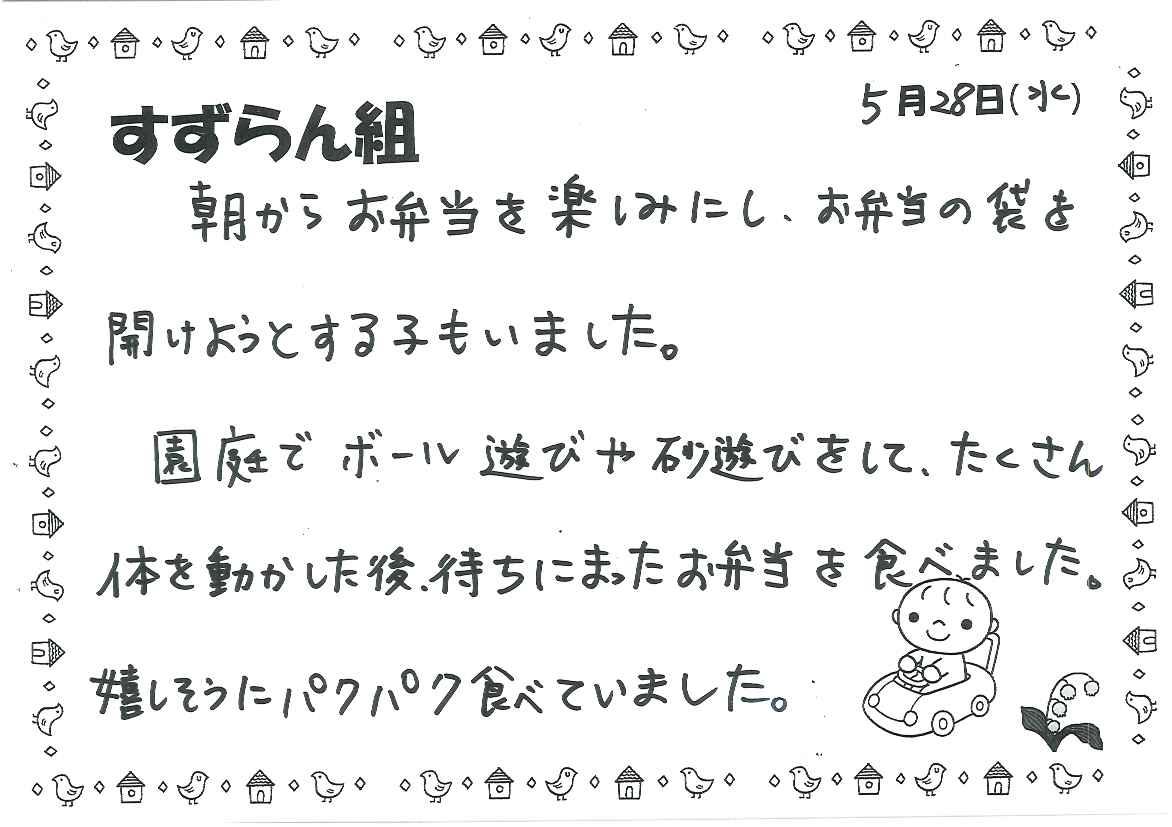 5月28日(水)
すずらん組
朝からお弁当を楽しみにし、お弁当の袋を
開けようとする子もいました。
園庭でボール遊びや砂遊びをして、たくさん
体を動かした後、待ちにまったお弁当を食べました。
嬉しそうにパクパク食べていました。